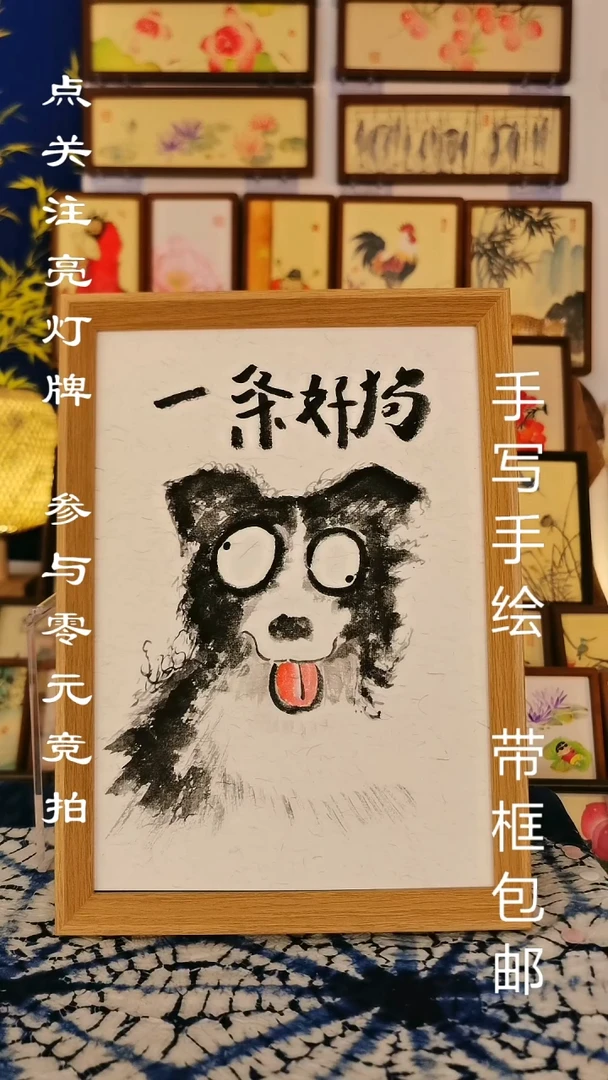 点关注亮灯牌 参与零元竞拍
一条好狗
手写手绘 带框包邮